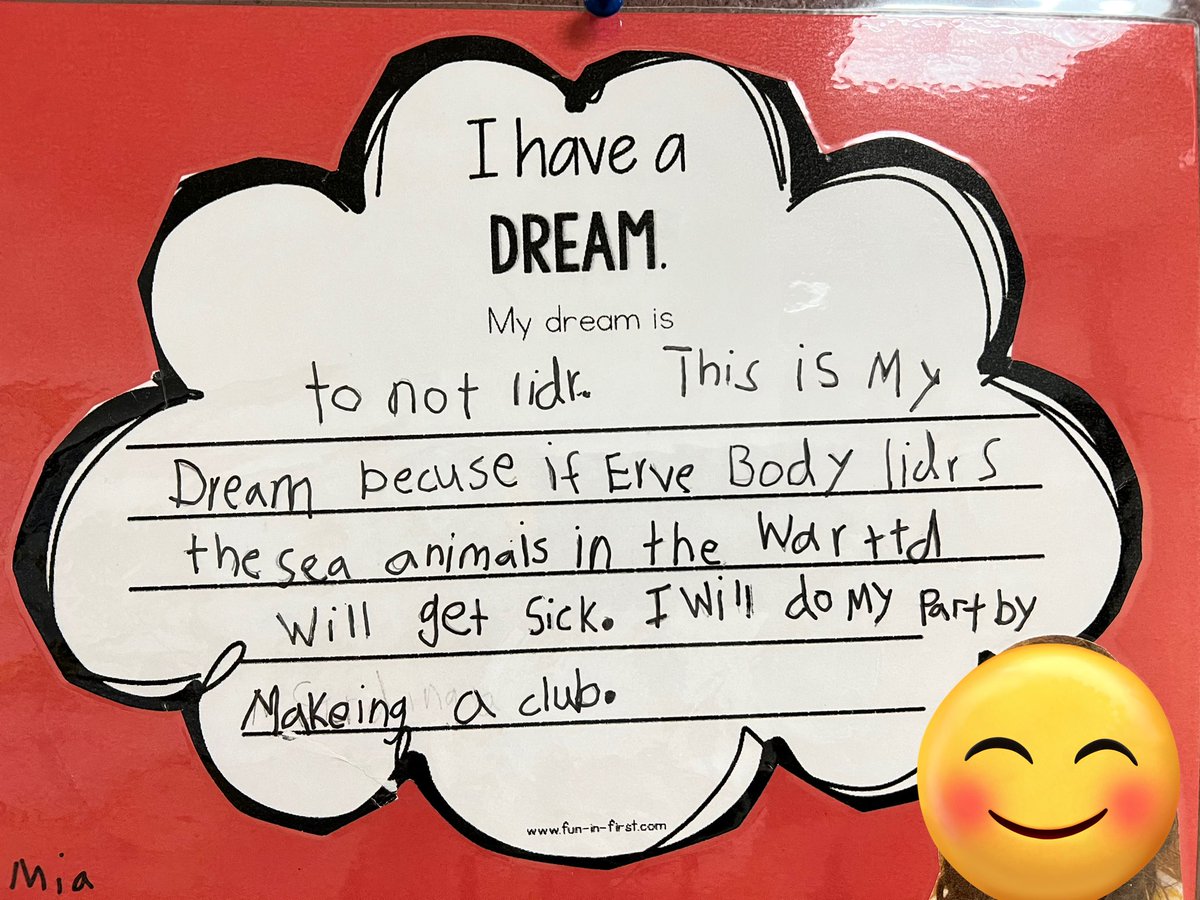 I have a
DREAM.
My dream is
to not lidr. This is My
Dream becuse if Erve Body lidrs
the sea animals in the Warttd
Will get Sick. I Will do My Part by
Makeing a club.
www.fun-in-first.com
Mia